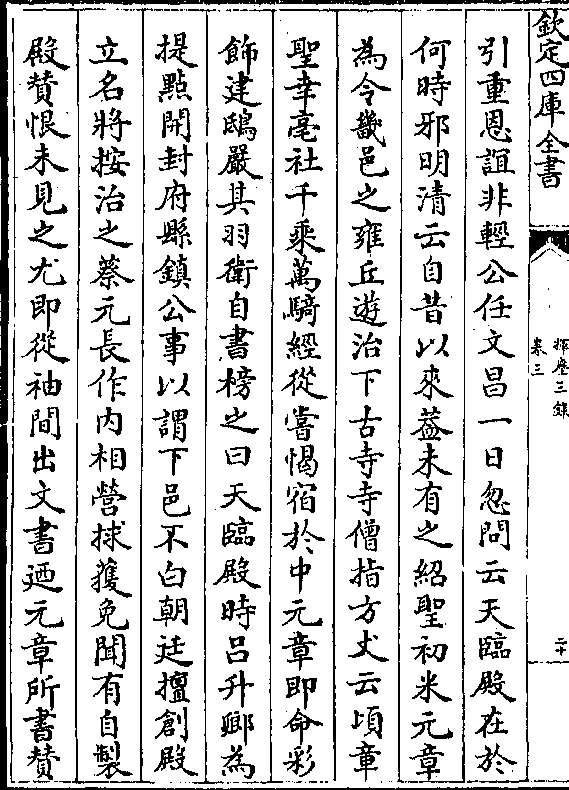 欽定四庫全書
揮麈三錄
卷三
二十
引重恩誼非輕公任文昌一日忽問云天臨殿在於
何時邪明清云自昔以來葢未有之紹聖初米元章
為令畿邑之雍丘遊治下古寺寺僧指方丈云頃章
聖幸亳社千乘萬騎經從嘗愒宿於中元章即命彩
飾建鴟嚴其羽衛自書榜之曰天臨殿時呂升卿為
提點開封府縣鎮公事以謂下邑不白朝廷擅創殿
立名將按治之蔡元長作内相營捄獲免聞有自製
殿賛恨未見之尤即從袖間出文書迺元章所書賛